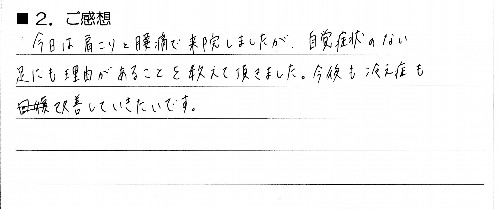 ■２．ご感想
今日は肩こりと腰痛で来院しましたが、自覚症状のない
足にも理由があることを教えて頂きました。今後も冷え症も
改善していきたいです。